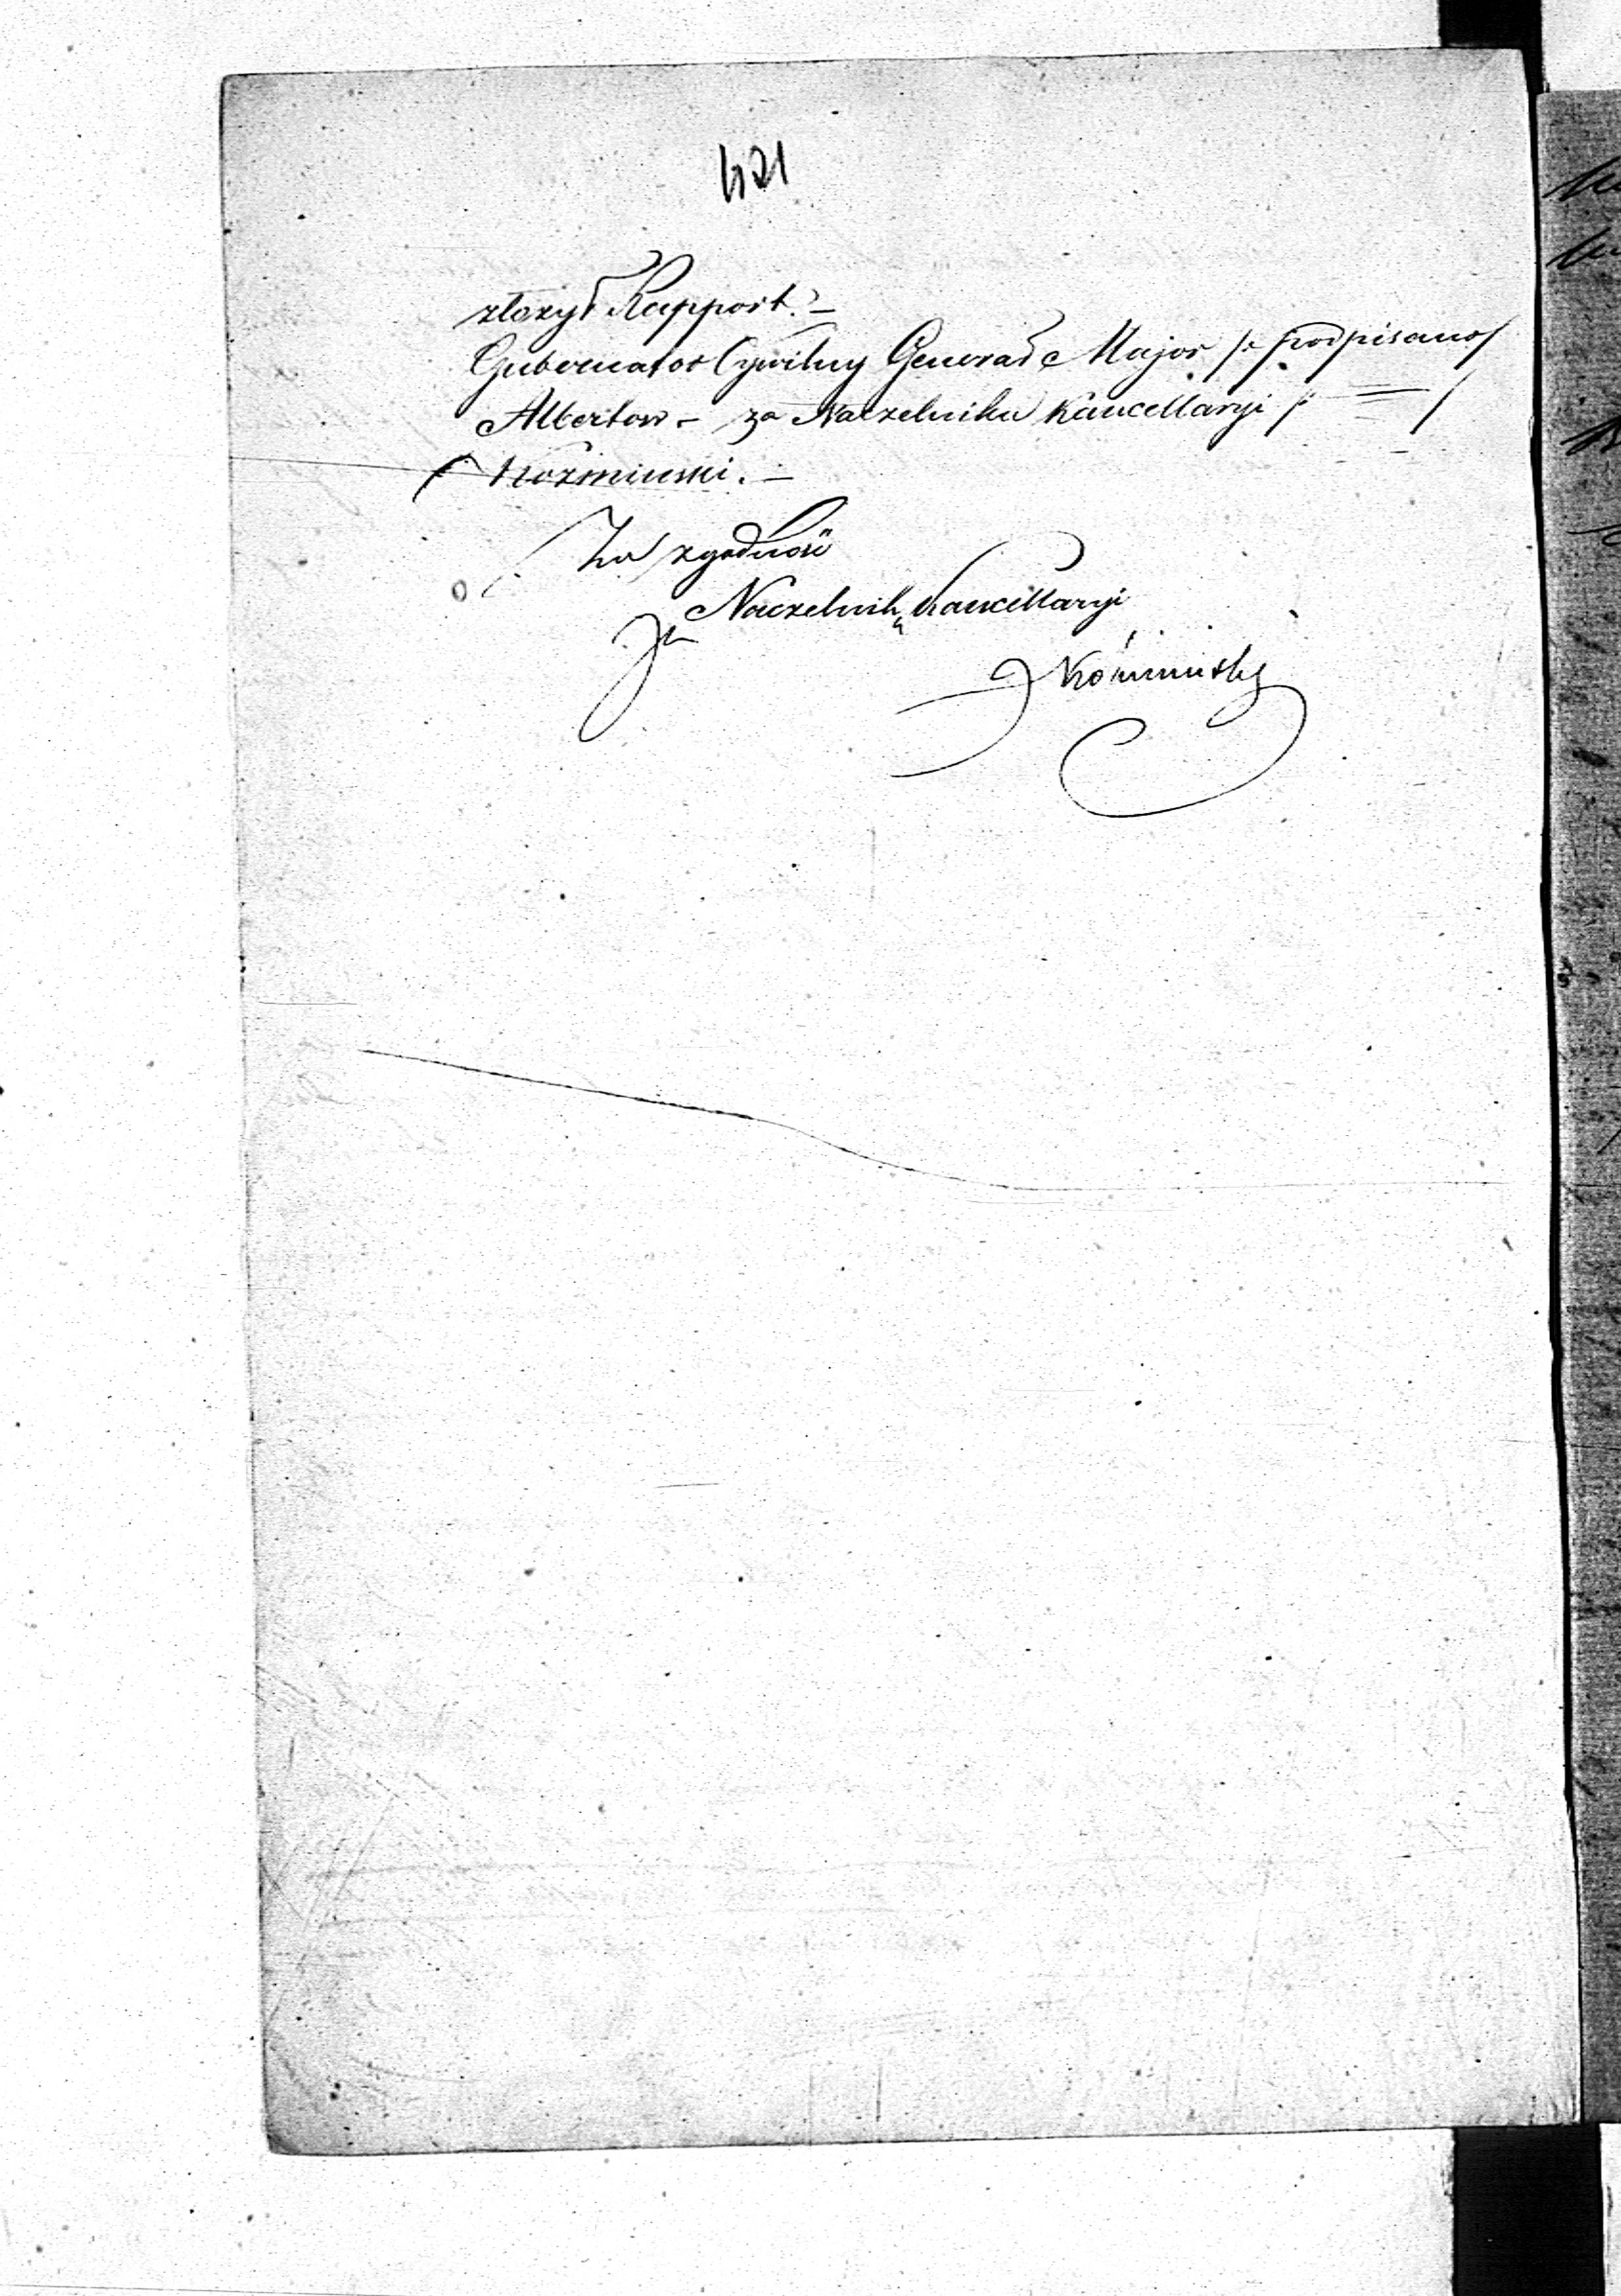 421
złożył Rapport. –
Gubernator Cywilny Generał Major /: podpisano /
Albertow – za Naczelnika Kancellaryi /: = /
Koźminski. –
Za zgodność
Za Naczelnika Kancellaryi
Koźminsky